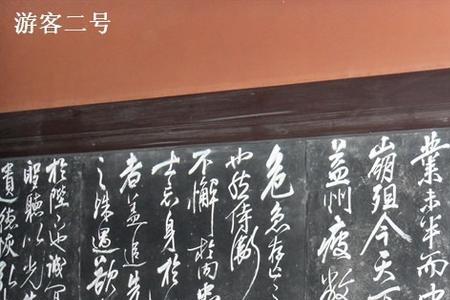 游客二号
業未半而中
崩殂今天下
益州疲敝
危急存亡之
也然侍衛
不懈於内忠
士忘身於
者蓋追先
之殊遇欲
於陛下也誠宜
聖聽以光先
遺德恢弘